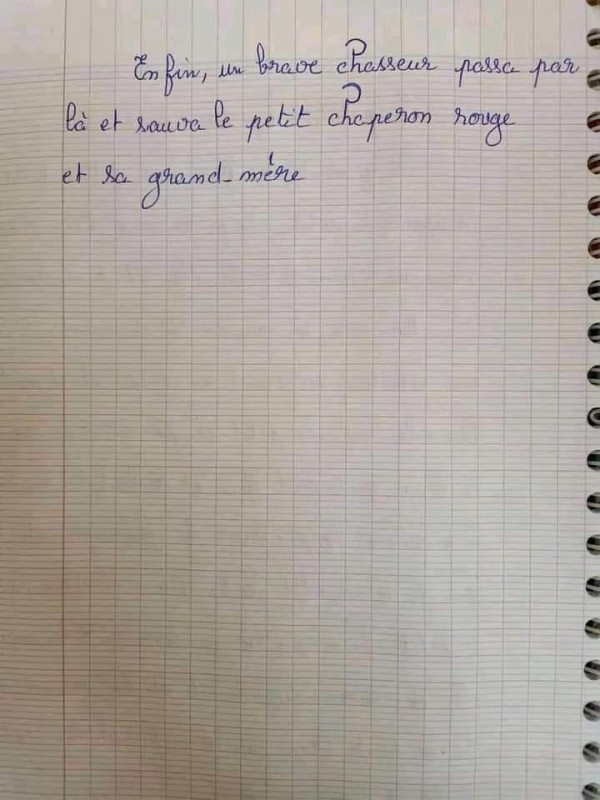 Enfin, un brave chasseur passa par
là et sauva le petit chaperon rouge
et sa grand-mère